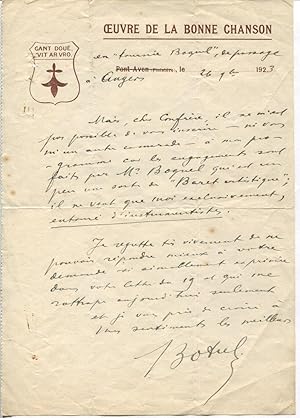 ŒUVRE DE LA BONNE CHANSON
GANT DOUÉ
VIT AR VRO
en "tournée Boquel", de passage
Pont-Aven (FINISTÈRE), le 26 9bre 1923
à Angers
Mais, cher Confrère, il ne m'est
pas possible de vous inscrire — ni vous
ni un autre camarade — à mon pro-
gramme car les engagements sont
faits par Mr Boquel qui est un
peu une sorte de "Baret artistique";
il ne veut que moi exclusivement,
entouré d'instrumentistes.
Je regrette très vivement de ne
pouvoir répondre mieux à votre
demande si aimablement exprimée
dans votre lettre du 19 et qui me
rattrape aujourd'hui seulement
et je vous prie de croire à
mes sentiments les meilleurs
Botrel